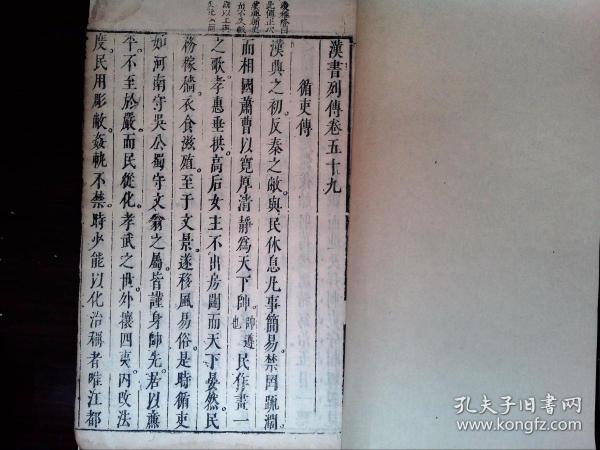 漢書列傳卷五十九
循吏傳
漢興之初。反秦之敝。與民休息。凡事簡易。禁罔疏濶。
而相國蕭曹以寛厚清靜爲天下帥。帥遵也民作畫一
之歌。孝惠垂拱。高后女主不出房闥。而天下晏然。民
務稼穡。衣食滋殖。至于文景。遂移風易俗。是時循吏
如河南守吳公蜀守文翁之屬。皆謹身帥先。居以廉
平。不至於嚴。而民從化。孝武之世。外攘四夷。内改法
度。民用彫敝。姦軌不禁。時少能以化治稱者。唯江都
孔夫子旧书网
www.kongfz.com